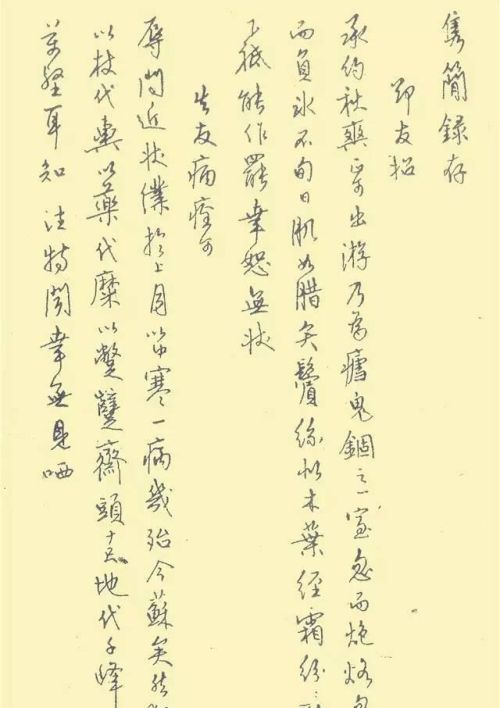 隽簡錄存
邳友招
承約秋爽出游乃為瘧鬼錮之一室忽而炮烙忽
而負冰不旬日肌如腊矣鬢絲如木葉經霜紛
下祇能作罷幸恕無狀
友病痊
辱問近狀僕於上月以中寒一病幾殆今蘇矣然
以杖代輿以藥代糜以蹩躠齋頭十五地代千峰
萬壑耳知注特聞幸無見哂